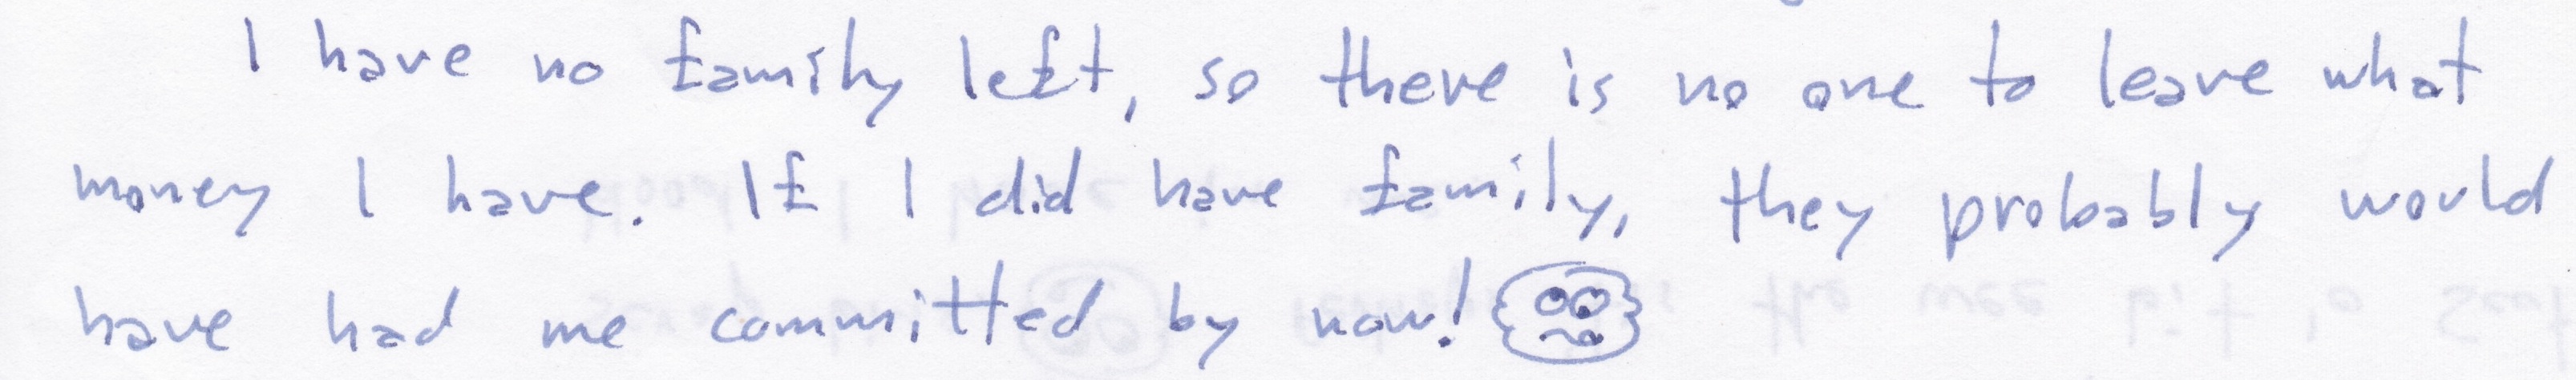 I have no family left, so there is no one to leave what
money I have. If I did have family, they probably would
have had me committed by now!